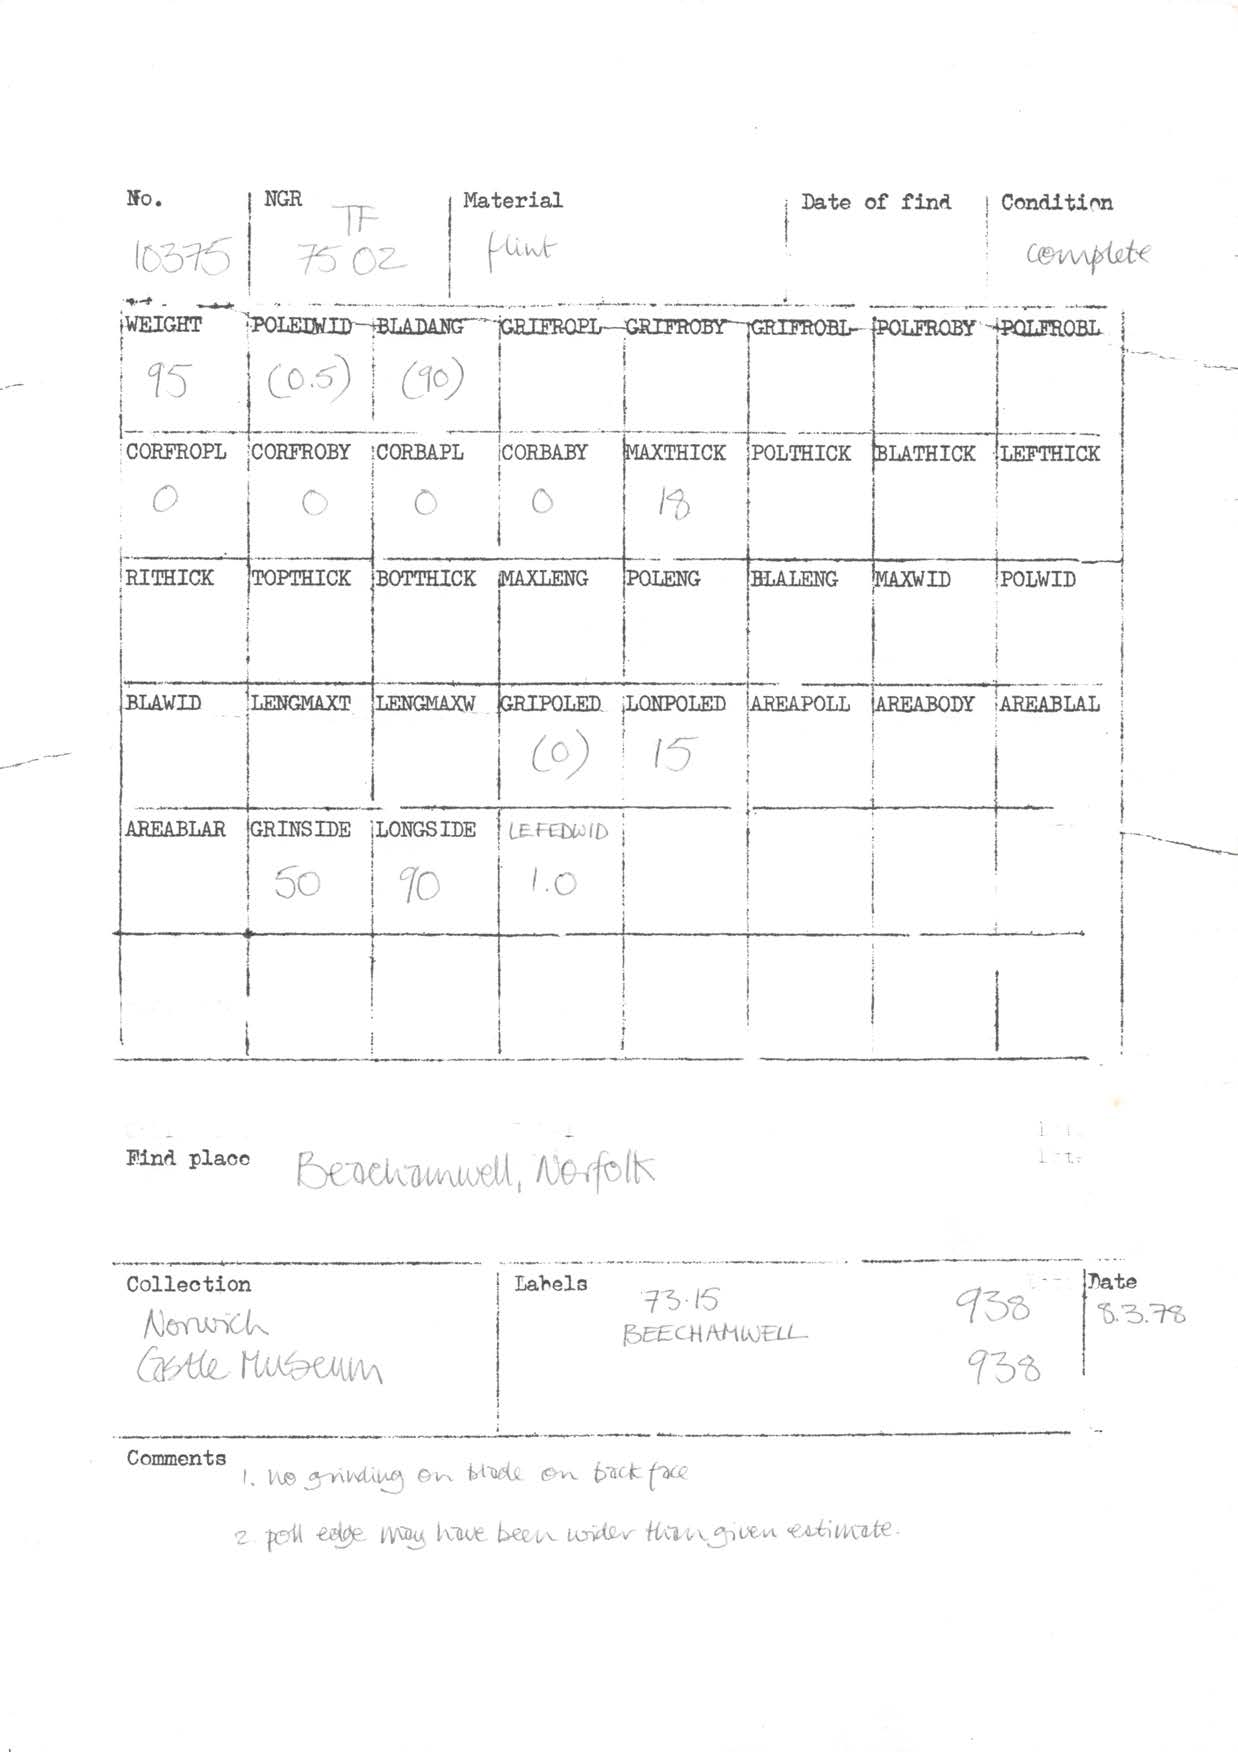 No. NGR Material Date of find Condition
10375 TF 75 02 flint complete
WEIGHT POLEDWID BLADANG GRIFROPL GRIFROBY GRIFROBL POLFROBY POLFROBL
95 (0.5) (90)
CORFROPL CORFROBY CORBAPL CORBABY MAXTHICK POLTHICK BLATHICK LEFTHICK
0 0 0 0 18
RITHICK TOPTHICK BOTTHICK MAXLENG POLENG BLALENG MAXWID POLWID
BLAWID LENGMAXT LENGMAXW GRIPOLED LONPOLED AREAPOLL AREABODY AREABLAL
(0) 15
AREABLAR GRINSIDE LONGSIDE LEFEDWID
50 90 1.0
Find place Beachamwell, Norfolk
Collection Labels Date
Norwich 73.15 938 8.3.78
BEECHAMWELL
Castle Museum 938
Comments
1. no grinding on blade on back face
2. poll edge may have been wider than given estimate.